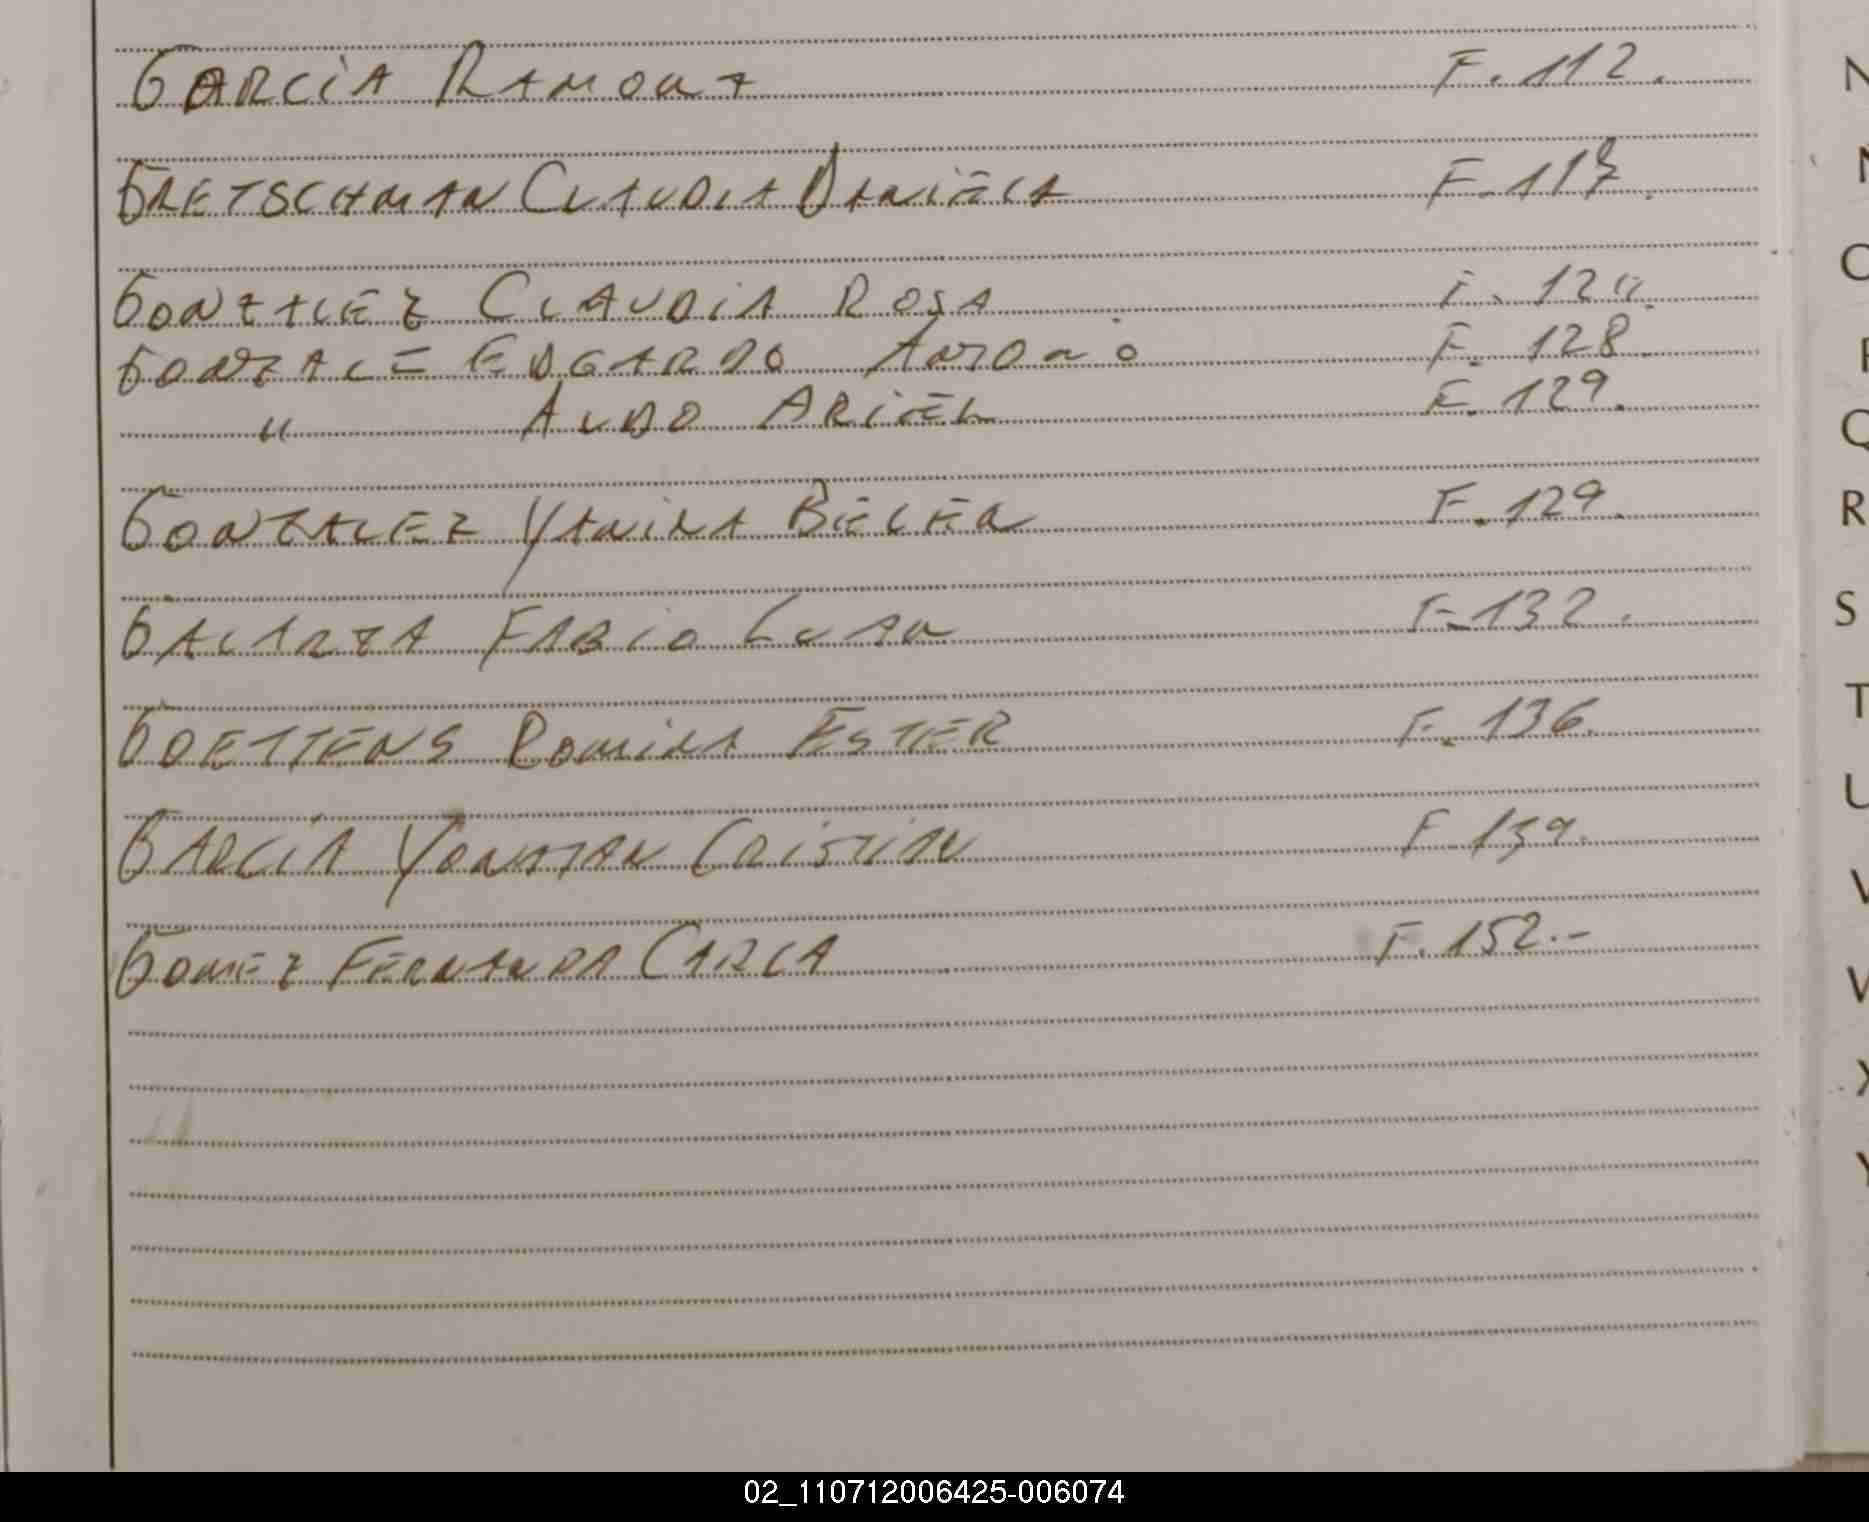 GARCÍA RAMONA F. 112.
GRETSCHMAN CLAUDIA DANIELA F. 117.
GONZALEZ CLAUDIA ROSA F. 12
GONZALE EDGARDO F. 128.
" ALDO ARIEL F. 129.
GONZALEZ YANINA BELEN F. 129.
GALARZA FABIO F. 132.
GOETTENS ROMINA ESTER F. 136.
GARCÍA YONATAN CRISTIAN F. 139.
GOMEZ FERNANDA CARLA F. 152.-
N
N
O
P
Q
R
S
T
U
V
W
X
Y
02_110712006425-006074